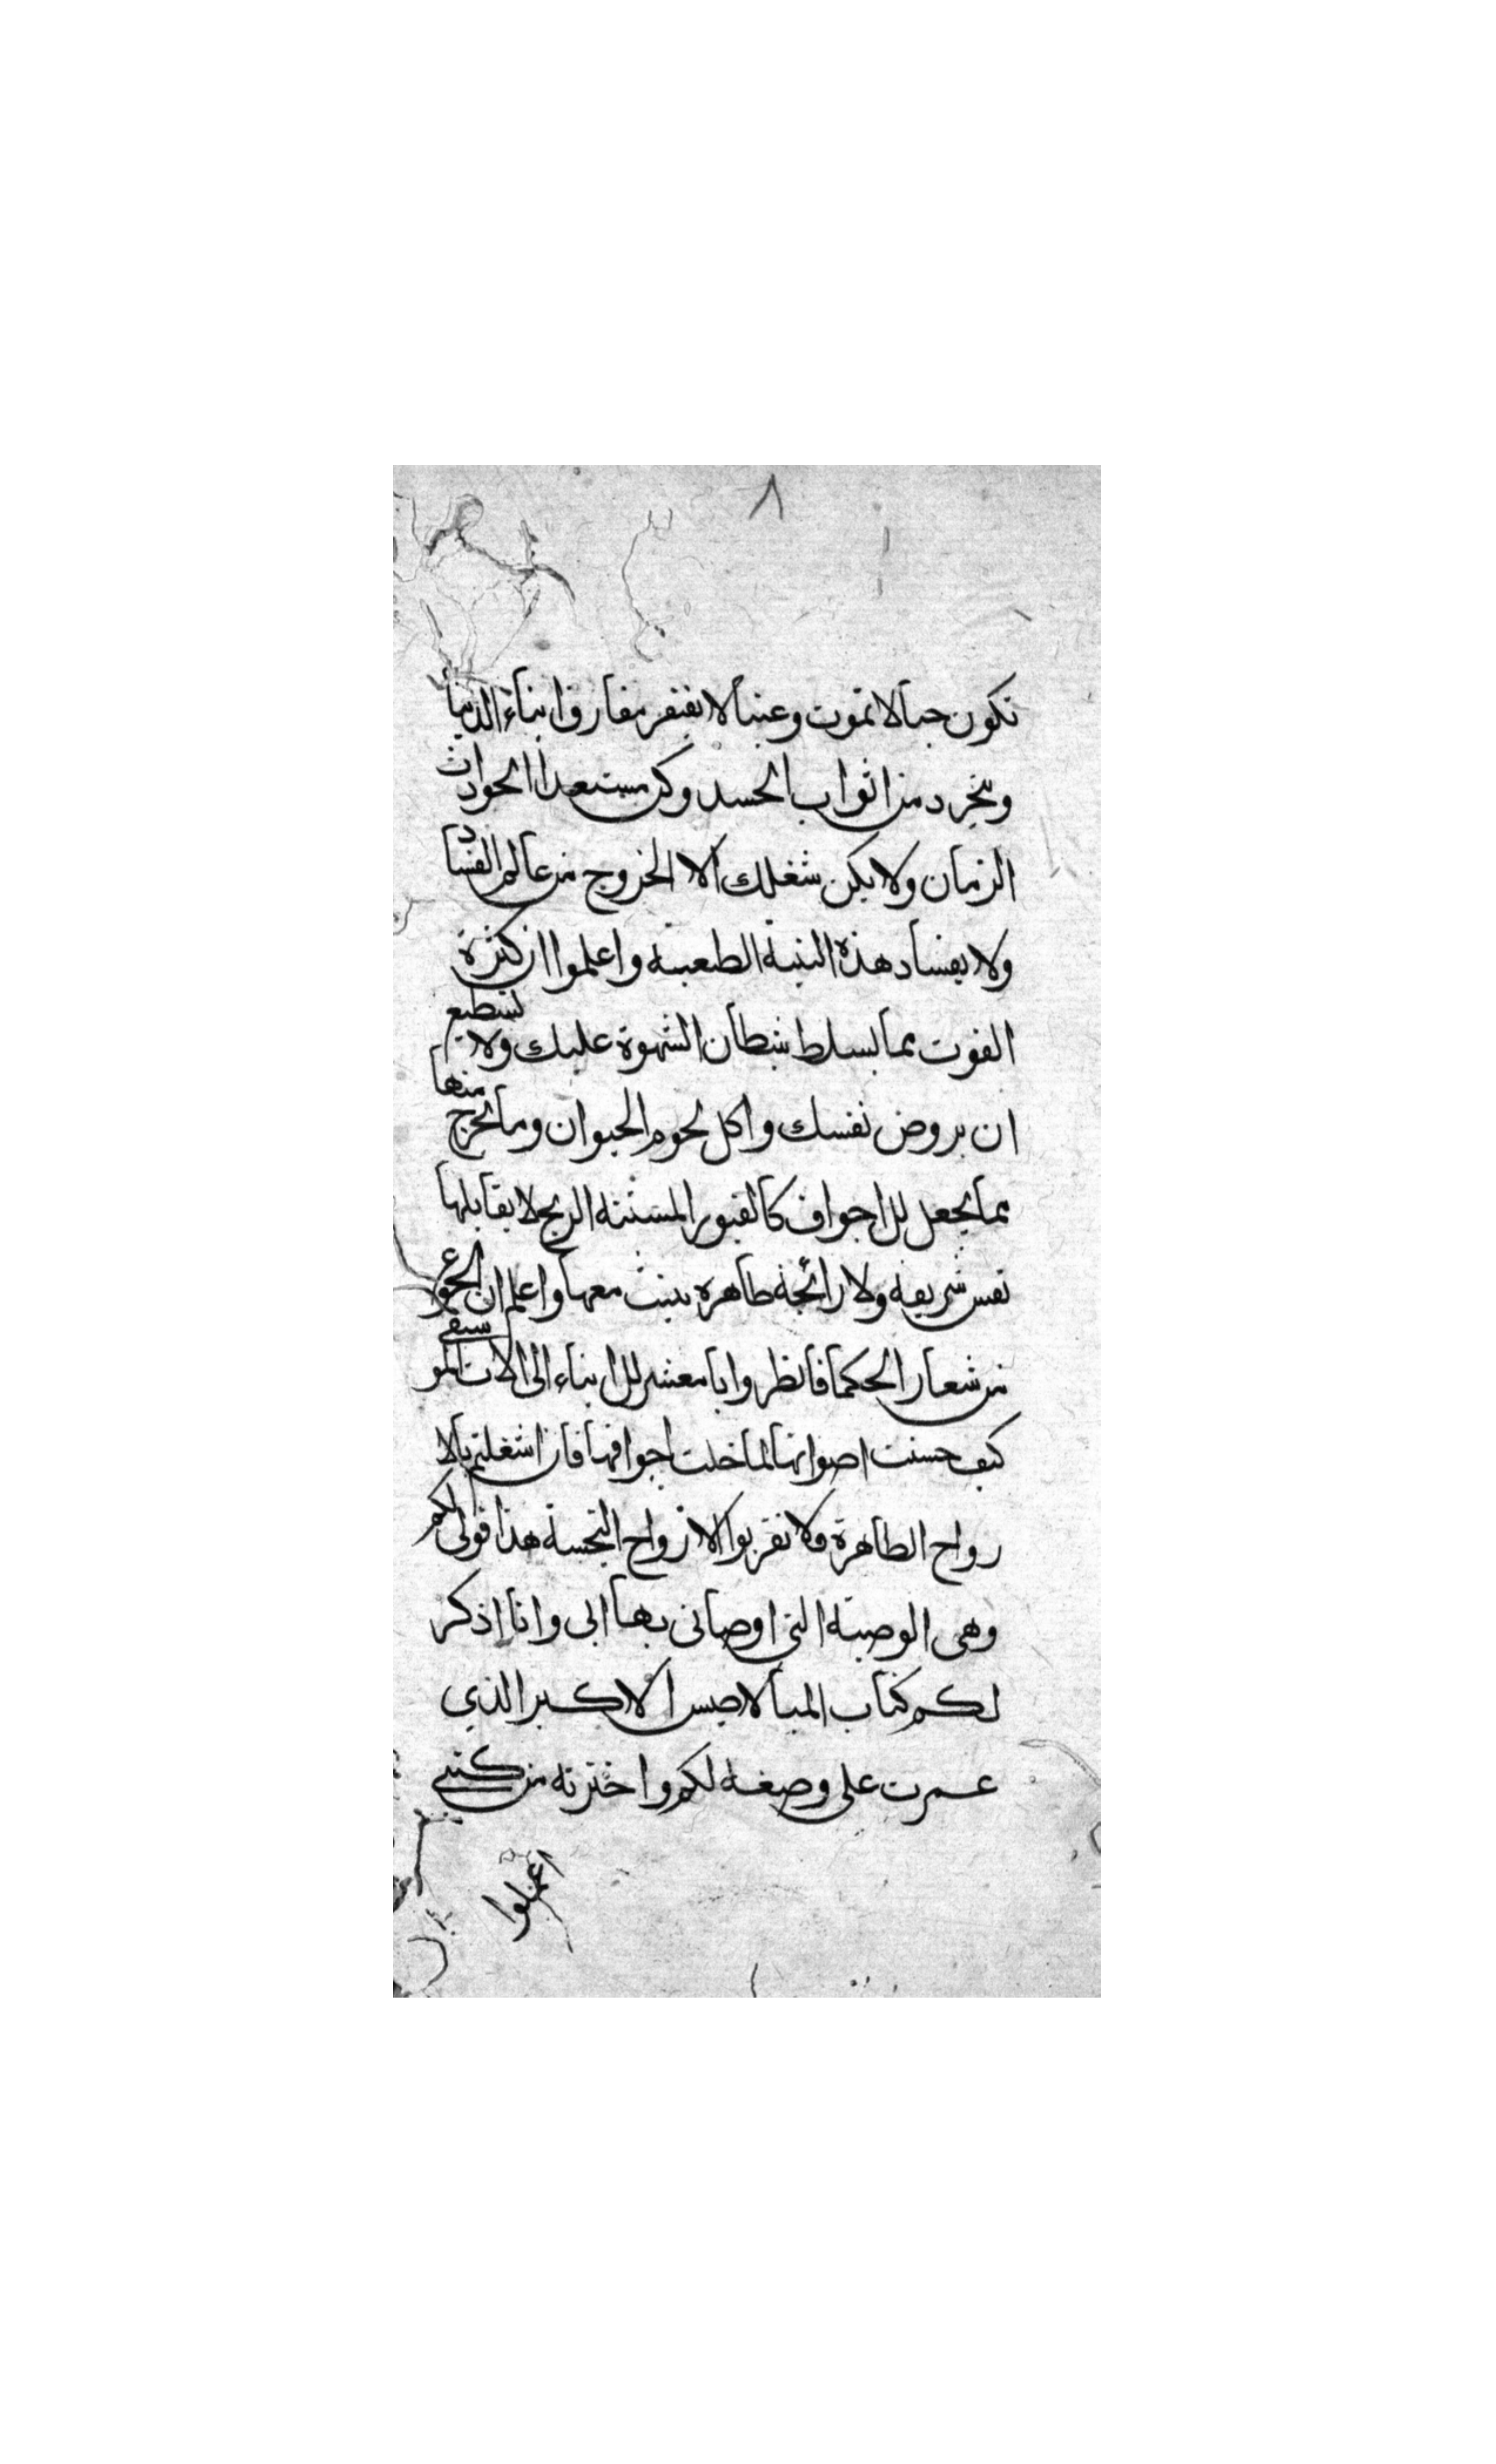 ٨
تكون حيا لا تموت وغنيا لا تفتقر مفارق ابناء الدنيا
وتتجرد من اثواب الحسد وكن مستعدا الحوادث
الزمان ولا يكن شغلك الا الخروج من عالم الفساد
ولا يفساد هذه البنية الطعبية واعلموا ان كثرة
القوت مما يسلط شيطان الشهوة عليك ولا تستطيع
ان يروض نفسك واكل لحوم الحيوان وما يخرج منها
مما يجعل للاجواف كالقبور المنتنة الريح لا يقابلها
نفس شريفة ولا رائحة طاهرة تبيت معها واعلم ان الجوع
من شعار الحكما فانظروا يا معشر للابناء الى الات الموسيقى
كيف حسنت اصواتها لما خلت اجوافها فان اشغلتم بالا
رواح الطاهرة ولا تقربوا الارواح النجسة هذا قولى لكم
وهى الوصية التى اوصانى بها ابى وانا اذكر
لكم كتاب الميالاصيس الاكبر الذي
عمرت على وصفه لكم واخترته من كتبى
اعملوا